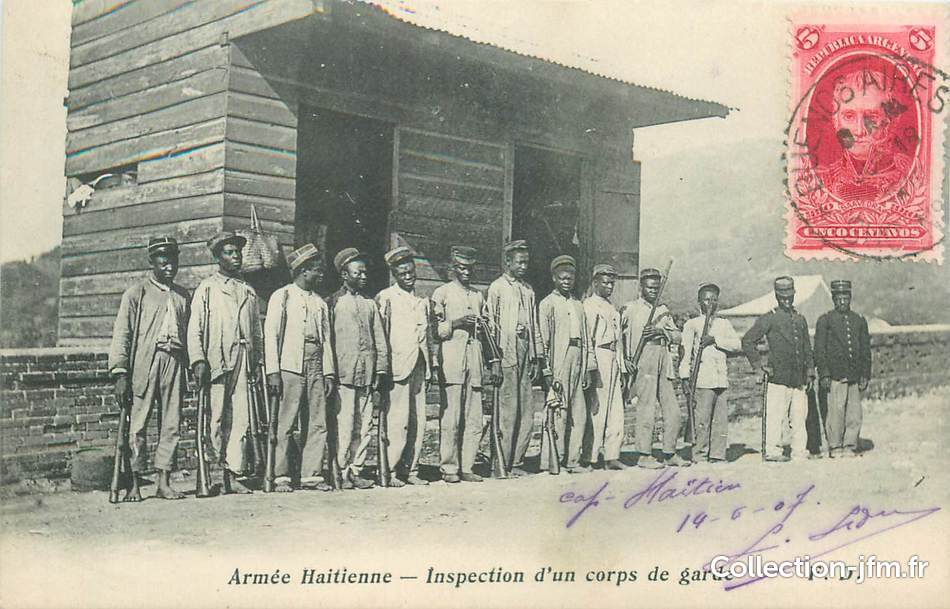 5 REPUBLICA ARGENTINA 5
BUENOS AIRES
SAAVEDRA
CINCO CENTAVOS
Cap-Haïtien
14-6-07
Armée Haitienne — Inspection d'un corps de garde
Collection.jfm.fr